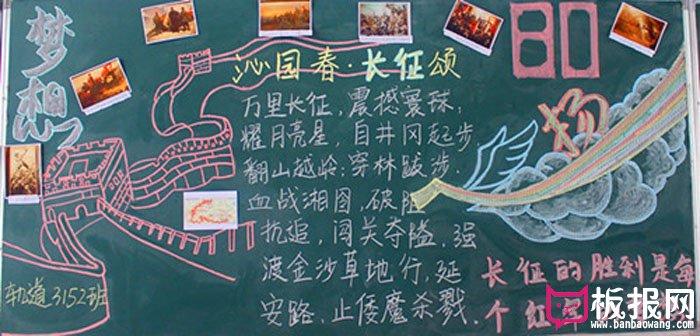 梦想
沁园春·长征颂
万里长征,震撼寰球;
耀月亮星,自井冈起步
翻山越岭;穿林跋涉.
血战湘图,破阻
抗追,闯关夺隘,强
渡金沙草地行,延
安路,止倭魔杀戮.
80
扬
长征的胜利是每
个红军
轨道3152班
板报网
www.banbaowang.com